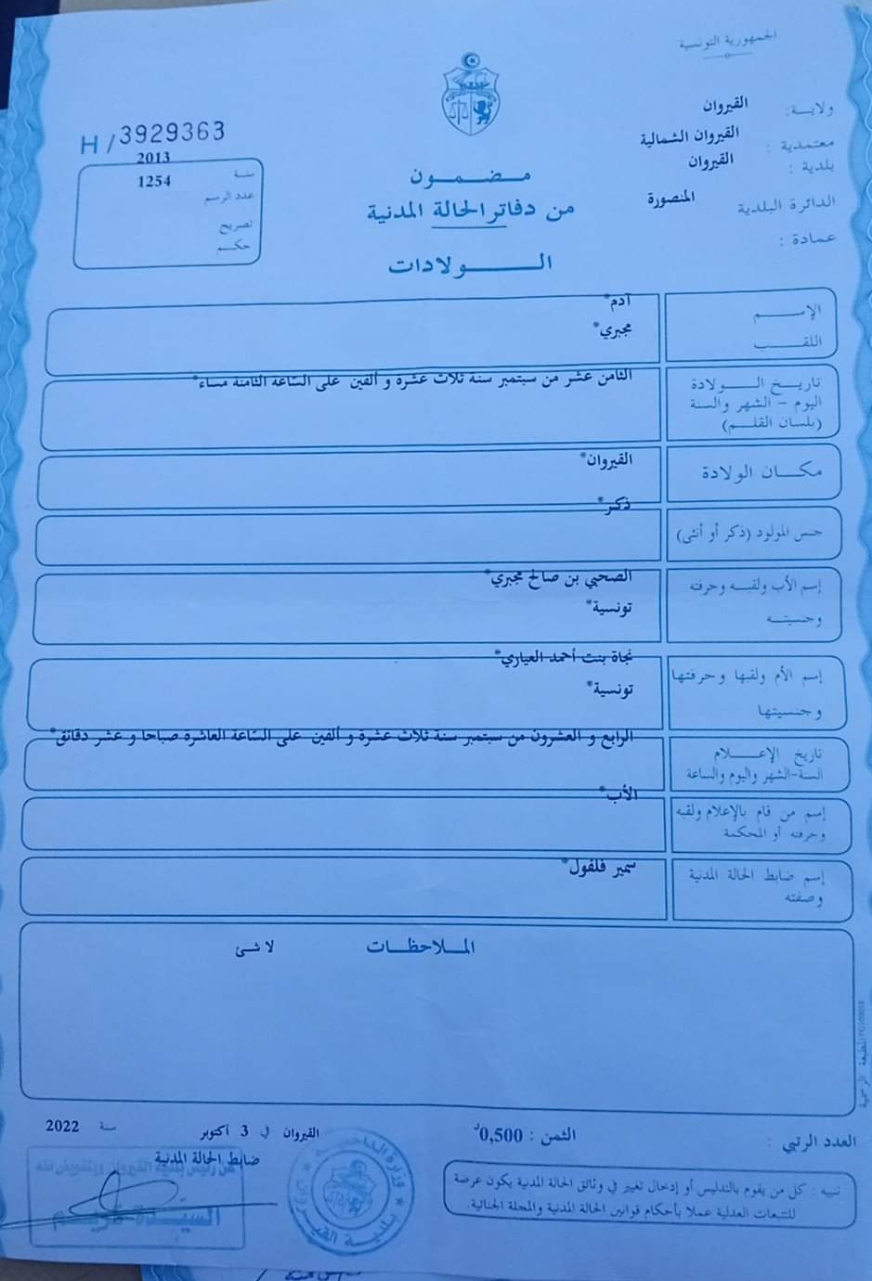 الجمهورية التونسية
ولايـــة: القيروان
معتمدية : القيروان الشمالية
بلدية : القيروان
الدائرة البلدية المنصورة
عمادة :
H/3929363
سنة 2013
عدد الرسم 1254
تصريح
حكـــم
مـــضـــمـــون
من دفاتر الحالة المدنية
الـــــولادات
الإســـــم آدم*
اللقـــــب مجبري*
تاريــخ الـــــولادة
اليوم – الشهر والسنة
(بلسان القلـــم)
الثامن عشر من سبتمبر سنة ثلاث عشرة و ألفين على الساعة الثامنة مساء*
مكـــان الولادة القيروان*
جنس المولود (ذكر أو أنثى) ذكر*
إسم الأب ولقبـــه وحرفته الصحبي بن صالح مجبري*
وجنسيتـــه تونسية*
إسم الأم ولقبها وحرفتها نجاة بنت أحمد العياري*
وجنسيتها تونسية*
تاريخ الإعـــــلام
السنة-الشهر واليوم والساعة
الرابع و العشرون من سبتمبر سنة ثلاث عشرة و ألفين على الساعة العاشرة صباحا و عشر دقائق*
إسم من قام بالإعلام ولقبه
وحرفته أو المحكمة
الأب*
إسم ضابط الحالة المدنية
وصفته
سمير فلفول*
المــلاحظــات لا شئ
العدد الرتبي :
الثمن : 0,500د
القيروان في 3 أكتوبر سنة 2022
ضابط الحالة المدنية
عن رئيس بلدية القيروان وبتفويض منه
تنبيه : كل من يقوم بالتدليس أو إدخال تغيير في وثائق الحالة المدنية يكون عرضة
للتتبعات العدلية عملا بأحكام قوانين الحالة المدنية والمجلة الجنائية.
المطبعة الرسمية